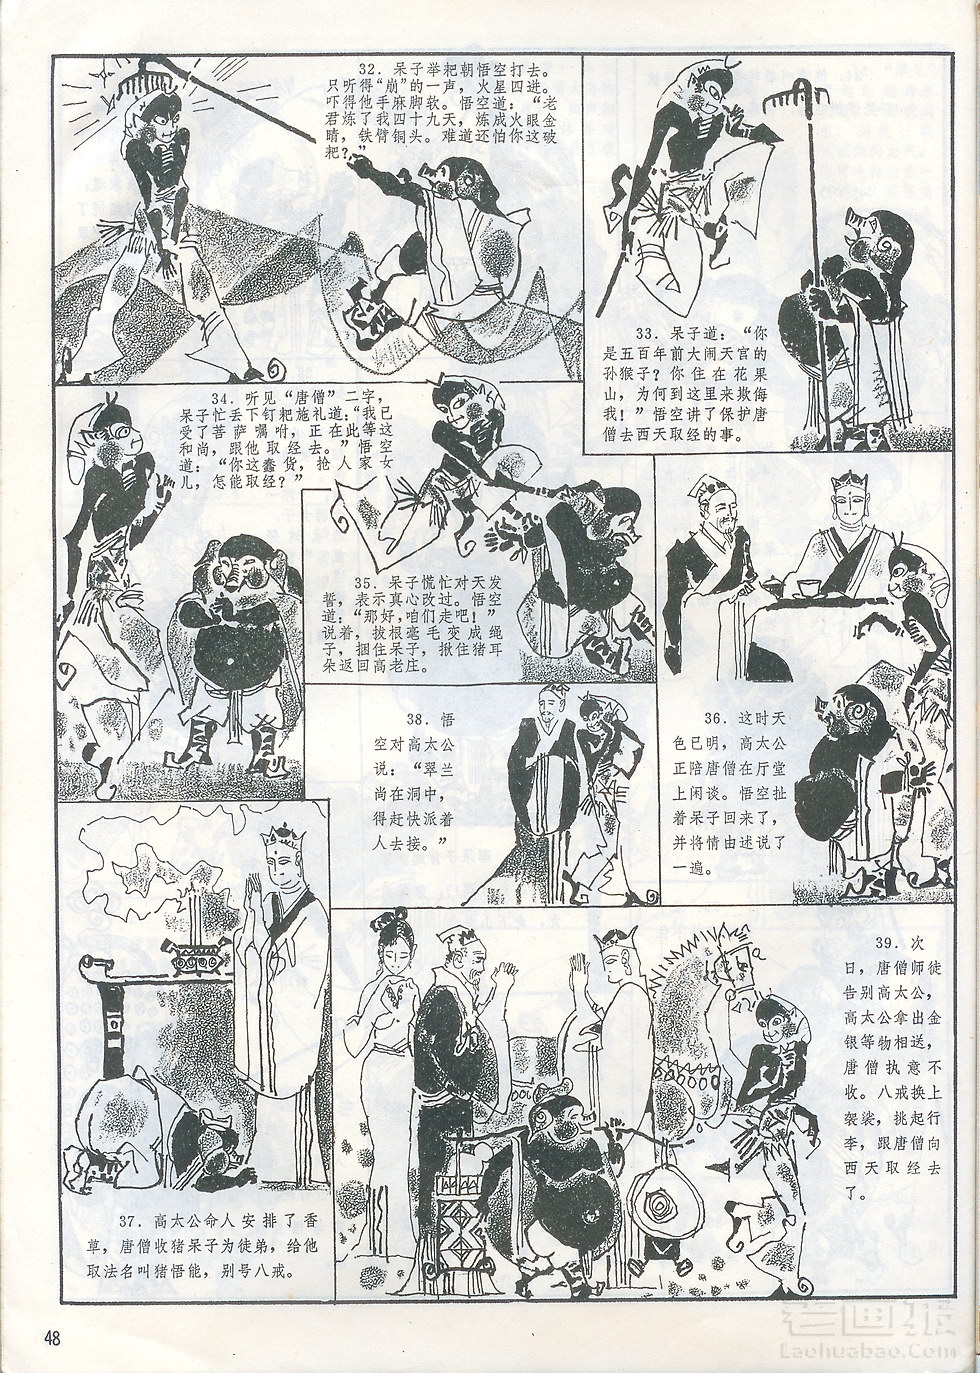 32. 呆子举耙朝悟空打去。
只听得“崩”的一声，火星四迸。
吓得他手麻脚软。悟空道：“老
君炼了我四十九天，炼成火眼金
睛，铁臂铜头。难道还怕你这破
耙？”
33. 呆子道：“你
是五百年前大闹天宫的
孙猴子？你住在花果
山，为何到这里来欺侮
我！”悟空讲了保护唐
僧去西天取经的事。
34. 听见“唐僧”二字，
呆子忙丢下钉耙施礼道：“我已
受了菩萨嘱咐，正在此等这
和尚，跟他取经去。”悟空
道：“你这蠢货，抢人家女
儿，怎能取经？”
35. 呆子慌忙对天发
誓，表示真心改过。悟空
道：“那好，咱们走吧！”
说着，拔根毫毛变成绳
子，捆住呆子，揪住猪耳
朵返回高老庄。
36. 这时天
色已明，高太公
正陪唐僧在厅堂
上闲谈。悟空扯
着呆子回来了，
并将情由述说了
一遍。
37. 高太公命人安排了香
草，唐僧收猪呆子为徒弟，给他
取法名叫猪悟能，别号八戒。
38. 悟
空对高太公
说：“翠兰
尚在洞中，
得赶快派着
人去接。”
39. 次
日，唐僧师徒
告别高太公，
高太公拿出金
银等物相送，
唐僧执意不
收。八戒换上
袈裟，挑起行
李，跟唐僧向
西天取经去
了。
48
老画报
Laohuabao.Com